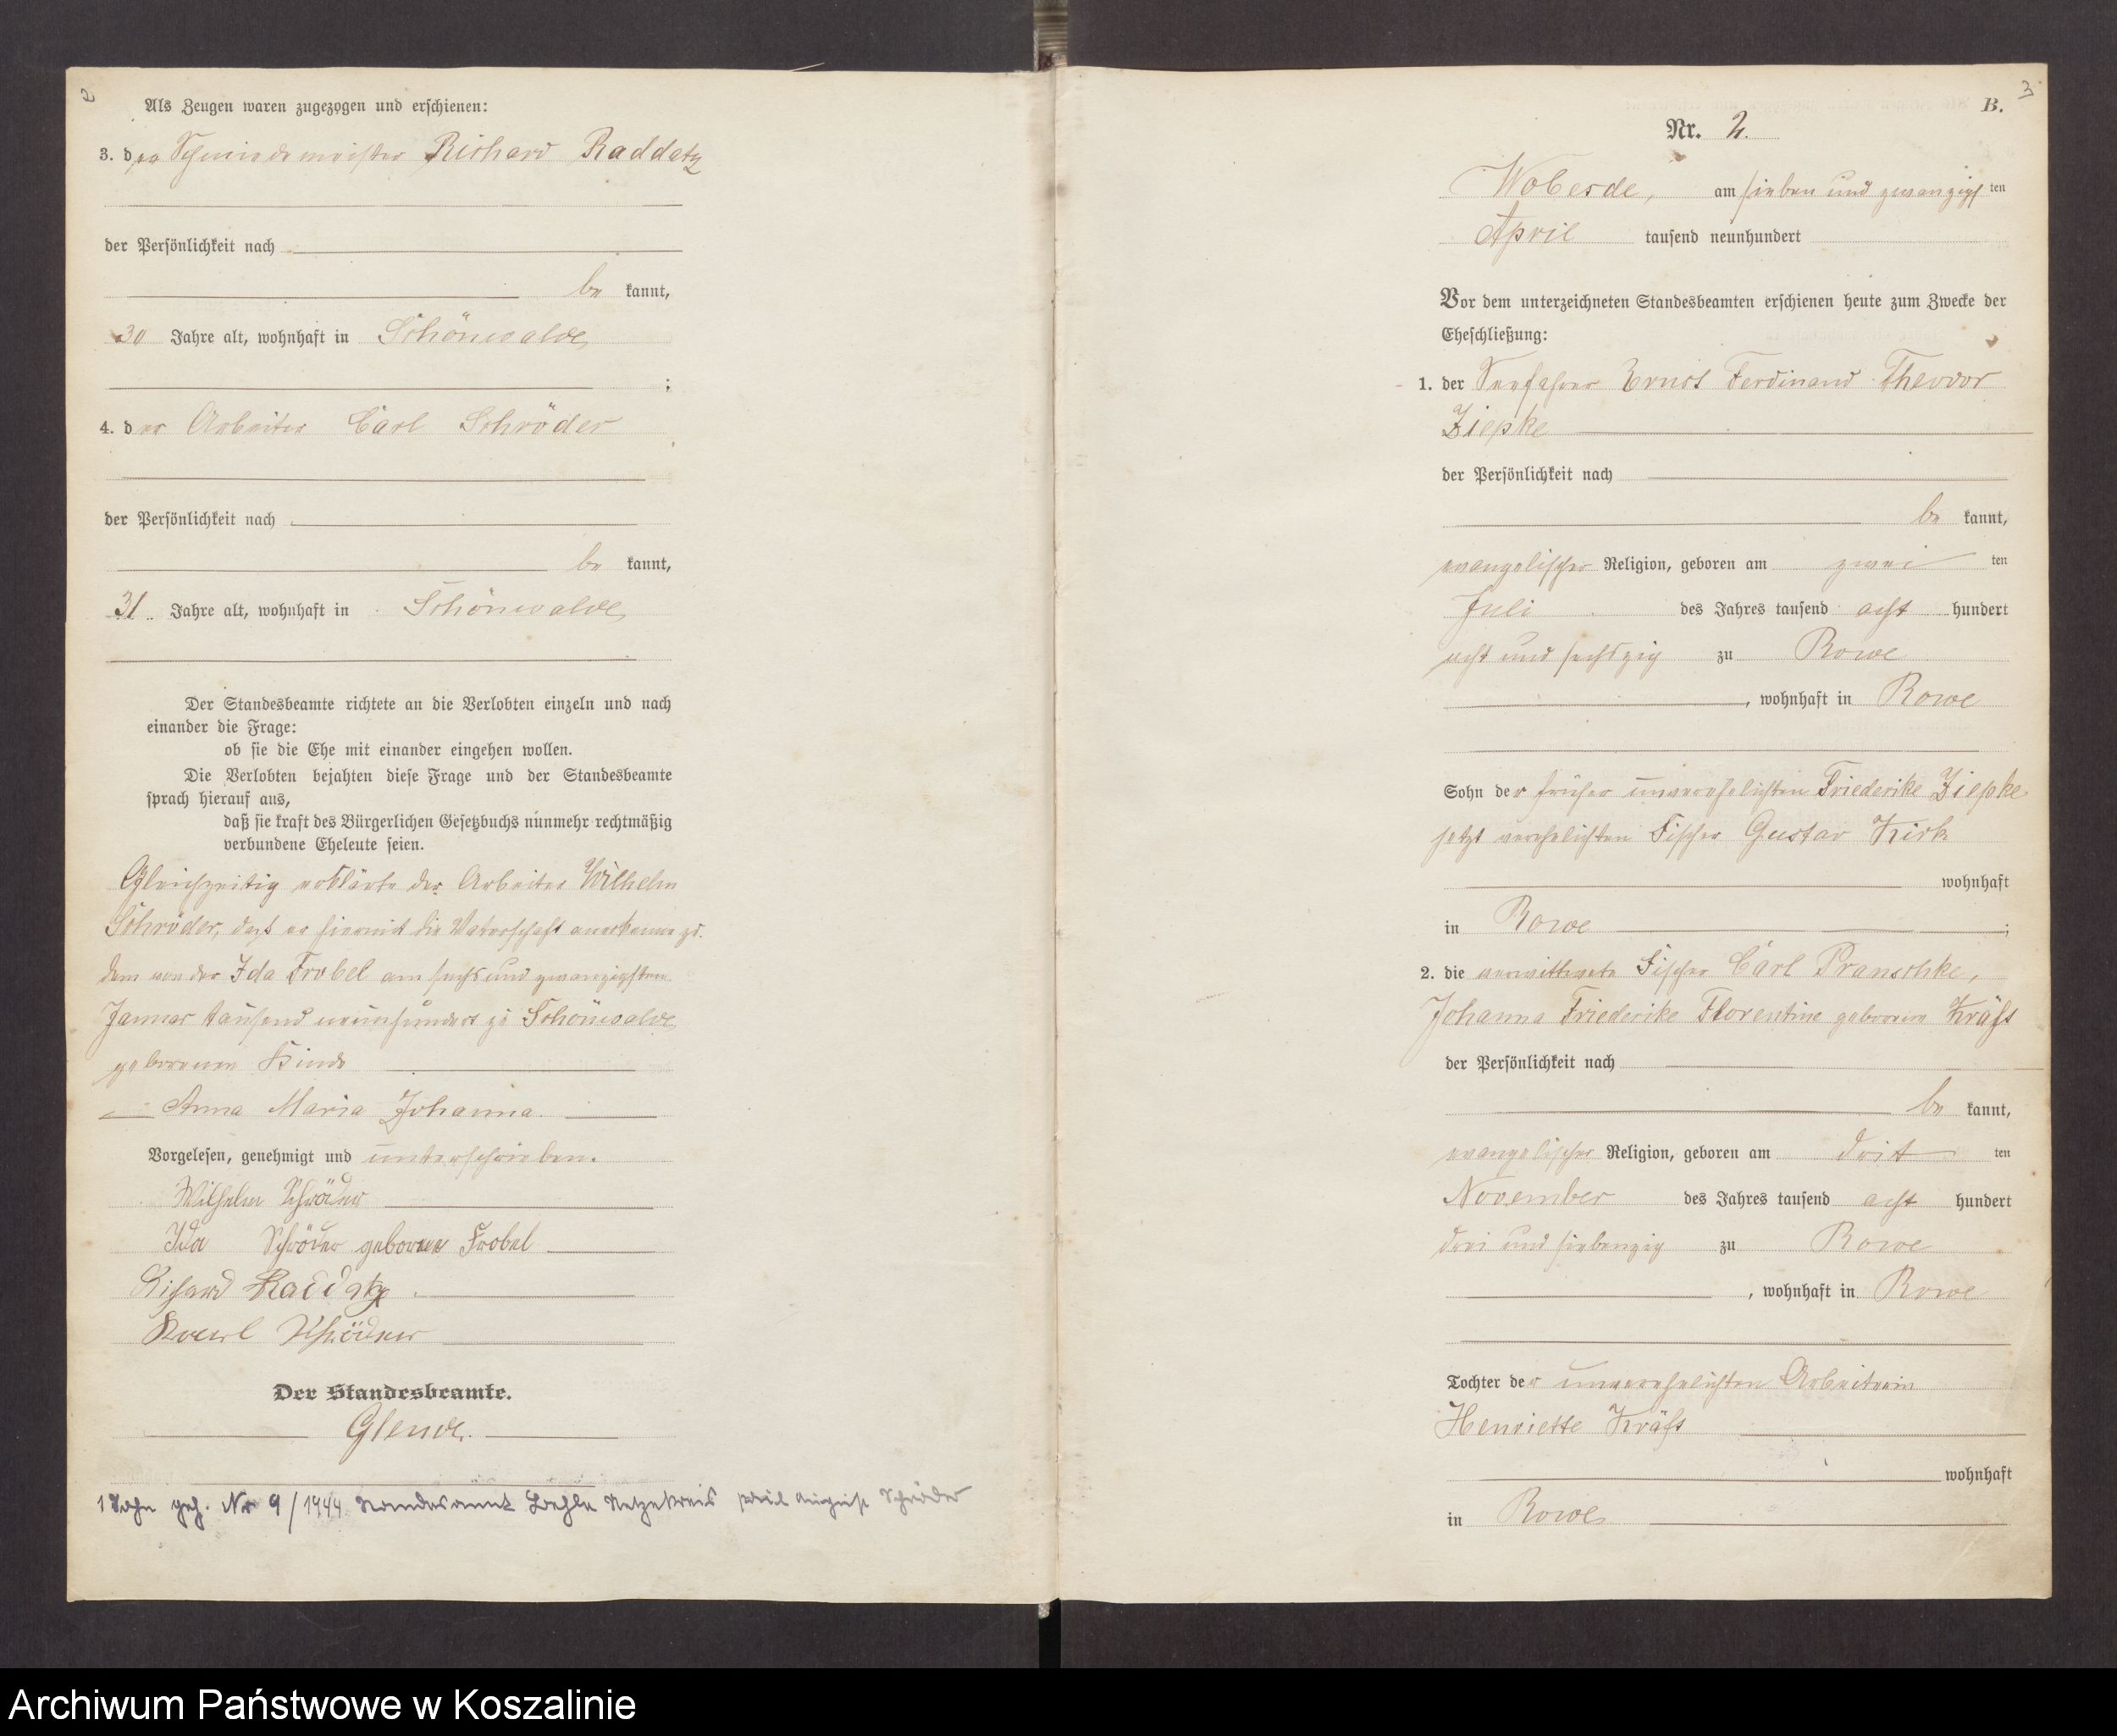 2
Als Zeugen waren zugezogen und erschienen:
3. der Schmiedemeister Richard Raddatz
der Persönlichkeit nach
be kannt,
30 Jahre alt, wohnhaft in Schönwalde
;
4. der Arbeiter Carl Schröder
der Persönlichkeit nach
be kannt,
31 Jahre alt, wohnhaft in Schönwalde
Der Standesbeamte richtete an die Verlobten einzeln und nach
einander die Frage:
ob sie die Ehe mit einander eingehen wollen.
Die Verlobten bejahten diese Frage und der Standesbeamte
sprach hierauf aus,
daß sie kraft des Bürgerlichen Gesetzbuchs nunmehr rechtmäßig
verbundene Eheleute seien.
Gleichzeitig erklärte der Arbeiter Wilhelm
Schröder, daß er hiermit die Vaterschaft anerkenne zu
dem von der Ida Frobel am sechs und zwanzigsten
Januar tausend neunhundert zu Schönwalde
geborenen Kinde
Anna Maria Johanna.
Vorgelesen, genehmigt und unterschrieben.
Wilhelm Schröder
Ida Schröder geborene Frobel
Richard Raddatz
Karl Schröder
Der Standesbeamte.
Glende.
1 Sohn geh. Nr 9/1944 Standesamt Netzekreis August Schröder
3
B.
Nr. 2.
Wobesde, am sieben und zwanzigsten
April tausend neunhundert
Vor dem unterzeichneten Standesbeamten erschienen heute zum Zwecke der
Eheschließung:
1. der Seefahrer Ernst Ferdinand Theodor
Ziepke
der Persönlichkeit nach
be kannt,
evangelischer Religion, geboren am zwei ten
Juli des Jahres tausend acht hundert
acht und sechszig zu Rowe
, wohnhaft in Rowe
Sohn der früher unverehelichten Friederike Ziepke
jetzt verehelichten Fischer Gustav Kirk
wohnhaft
in Rowe ;
2. die verwittwete Fischer Carl Pranschke,
Johanna Friederike Florentine geborene Kräft
der Persönlichkeit nach
be kannt,
evangelischer Religion, geboren am drit ten
November des Jahres tausend acht hundert
drei und siebenzig zu Rowe
, wohnhaft in Rowe
Tochter der unverehelichten Arbeiterin
Henriette Kräft
wohnhaft
in Rowe
Archiwum Państwowe w Koszalinie